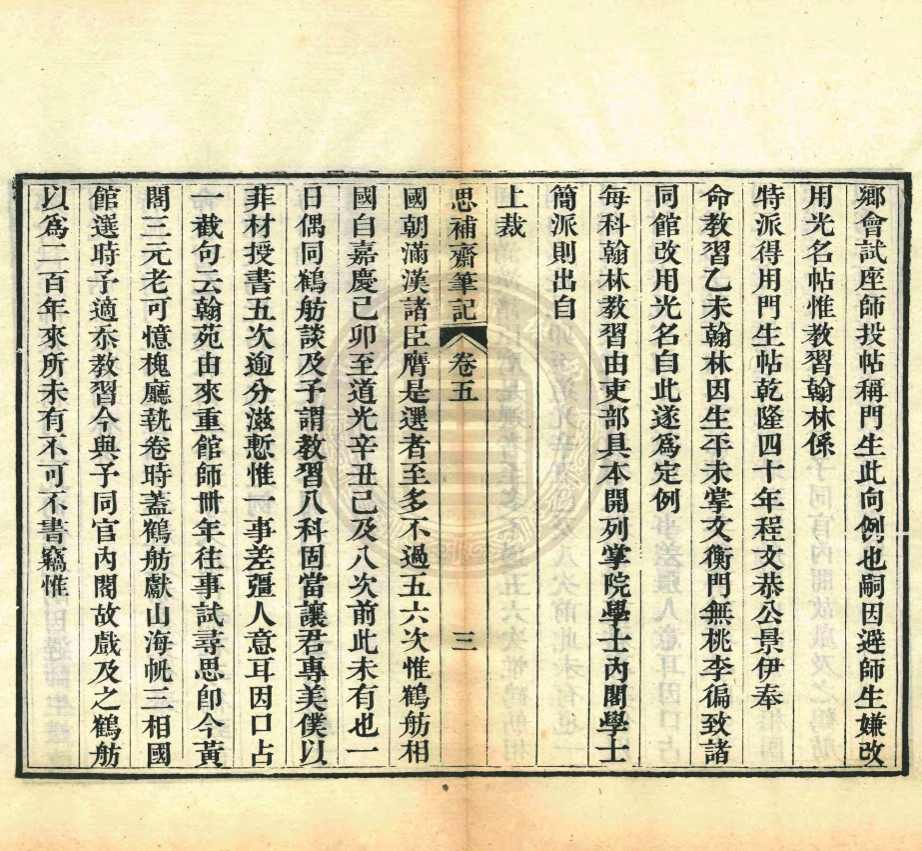 鄉會試座師投帖稱門生此向例也嗣因避師生嫌改
用光名帖惟教習翰林係
特派得用門生帖乾隆四十年程文恭公景伊奉
命教習乙未翰林因生平未掌文衡門無桃李徧致諸
同館改用光名自此遂爲定例
每科翰林教習由吏部具本開列掌院學士內閣學士
簡派則出自
上裁
思補齋筆記
卷五
三
國朝滿漢諸臣膺是選者至多不過五六次惟鶴舫相
國自嘉慶己卯至道光辛丑己及八次前此未有也一
日偶同鶴舫談及予謂教習八科固當讓君專美僕以
菲材授書五次逾分滋慙惟一事差彊人意耳因口占
一截句云翰苑由來重館師卌年往事試尋思卽今黃
閣三元老可憶槐廳執卷時蓋鶴舫獻山海帆三相國
館選時予適忝教習今與予同官內閣故戲及之鶴舫
以爲二百年來所未有不可不書竊惟